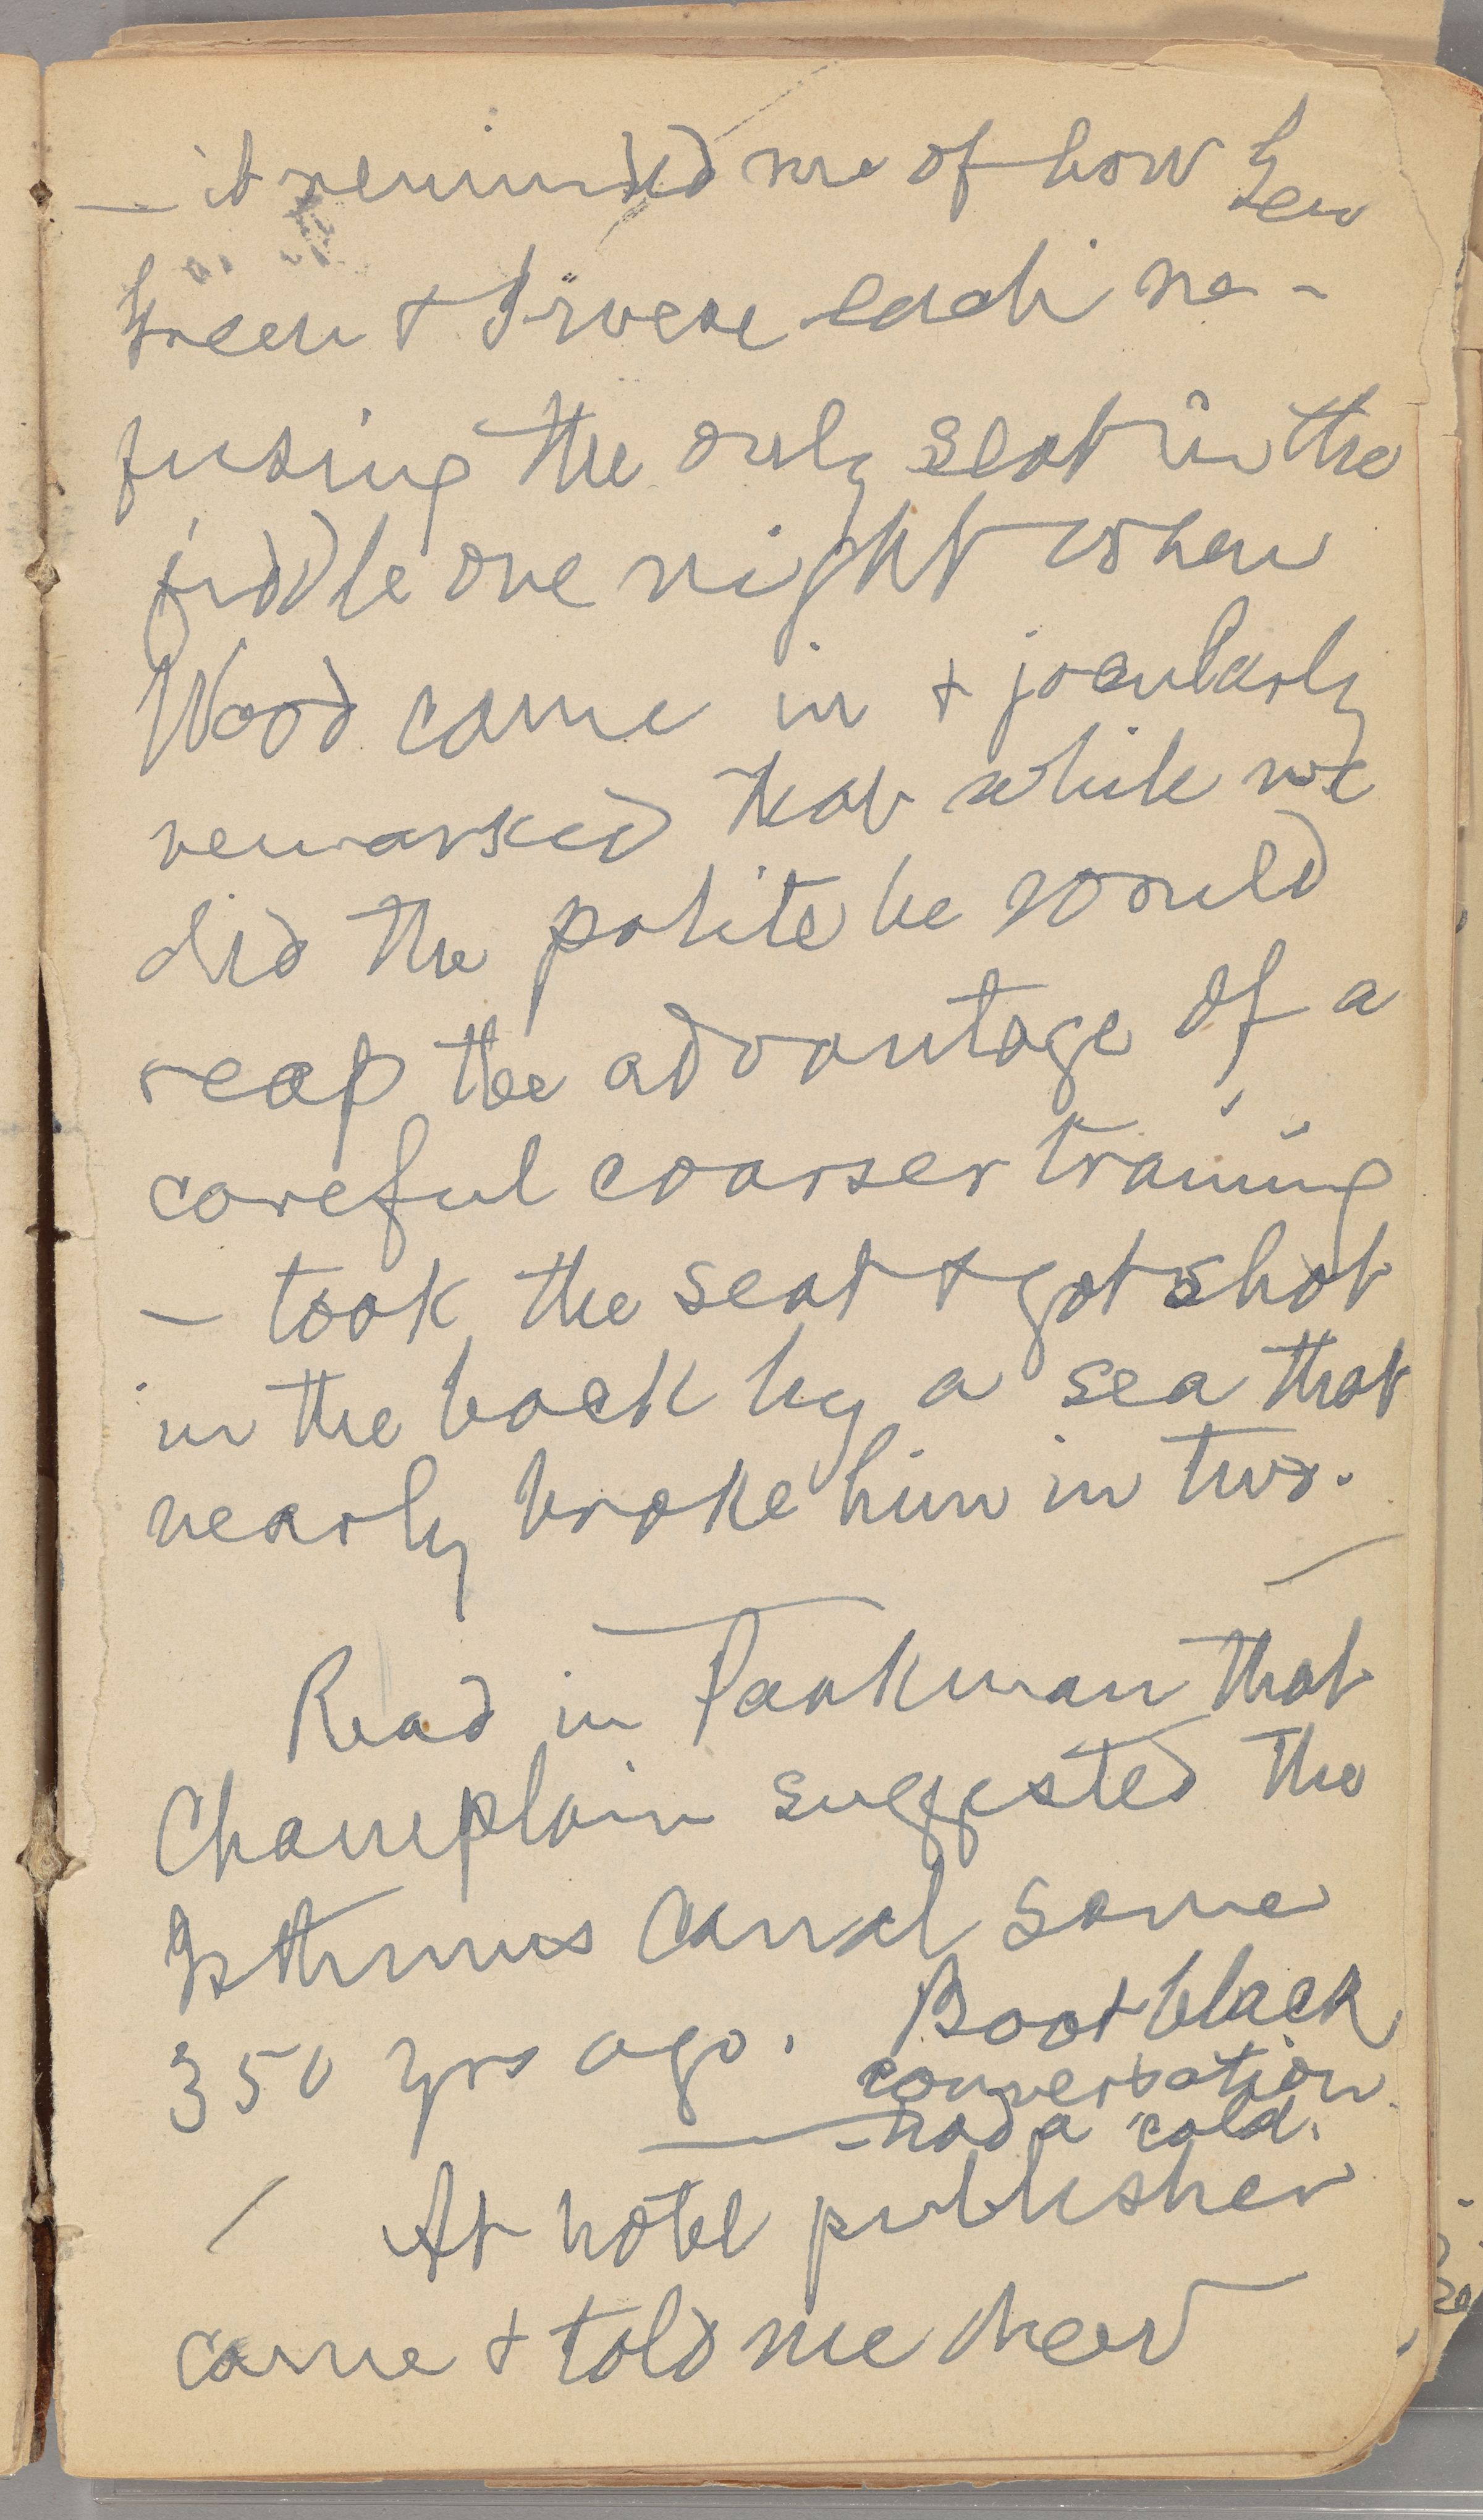 — it reminded me of how Gen
Green & I were each re-
fusing the only seat in the
fiddle one night when
Wood came in & jocularly
remarked that while we
did the polite he would
reap the advantage of a
careful coarser training
— took the seat & got shot
in the back by a sea that
nearly broke him in two.
Read in Parkman that
Champlain suggested the
Isthmus Canal some
350 yrs ago. Bootblack
conversation
— had a cold.
At hotel publisher
came & told me how